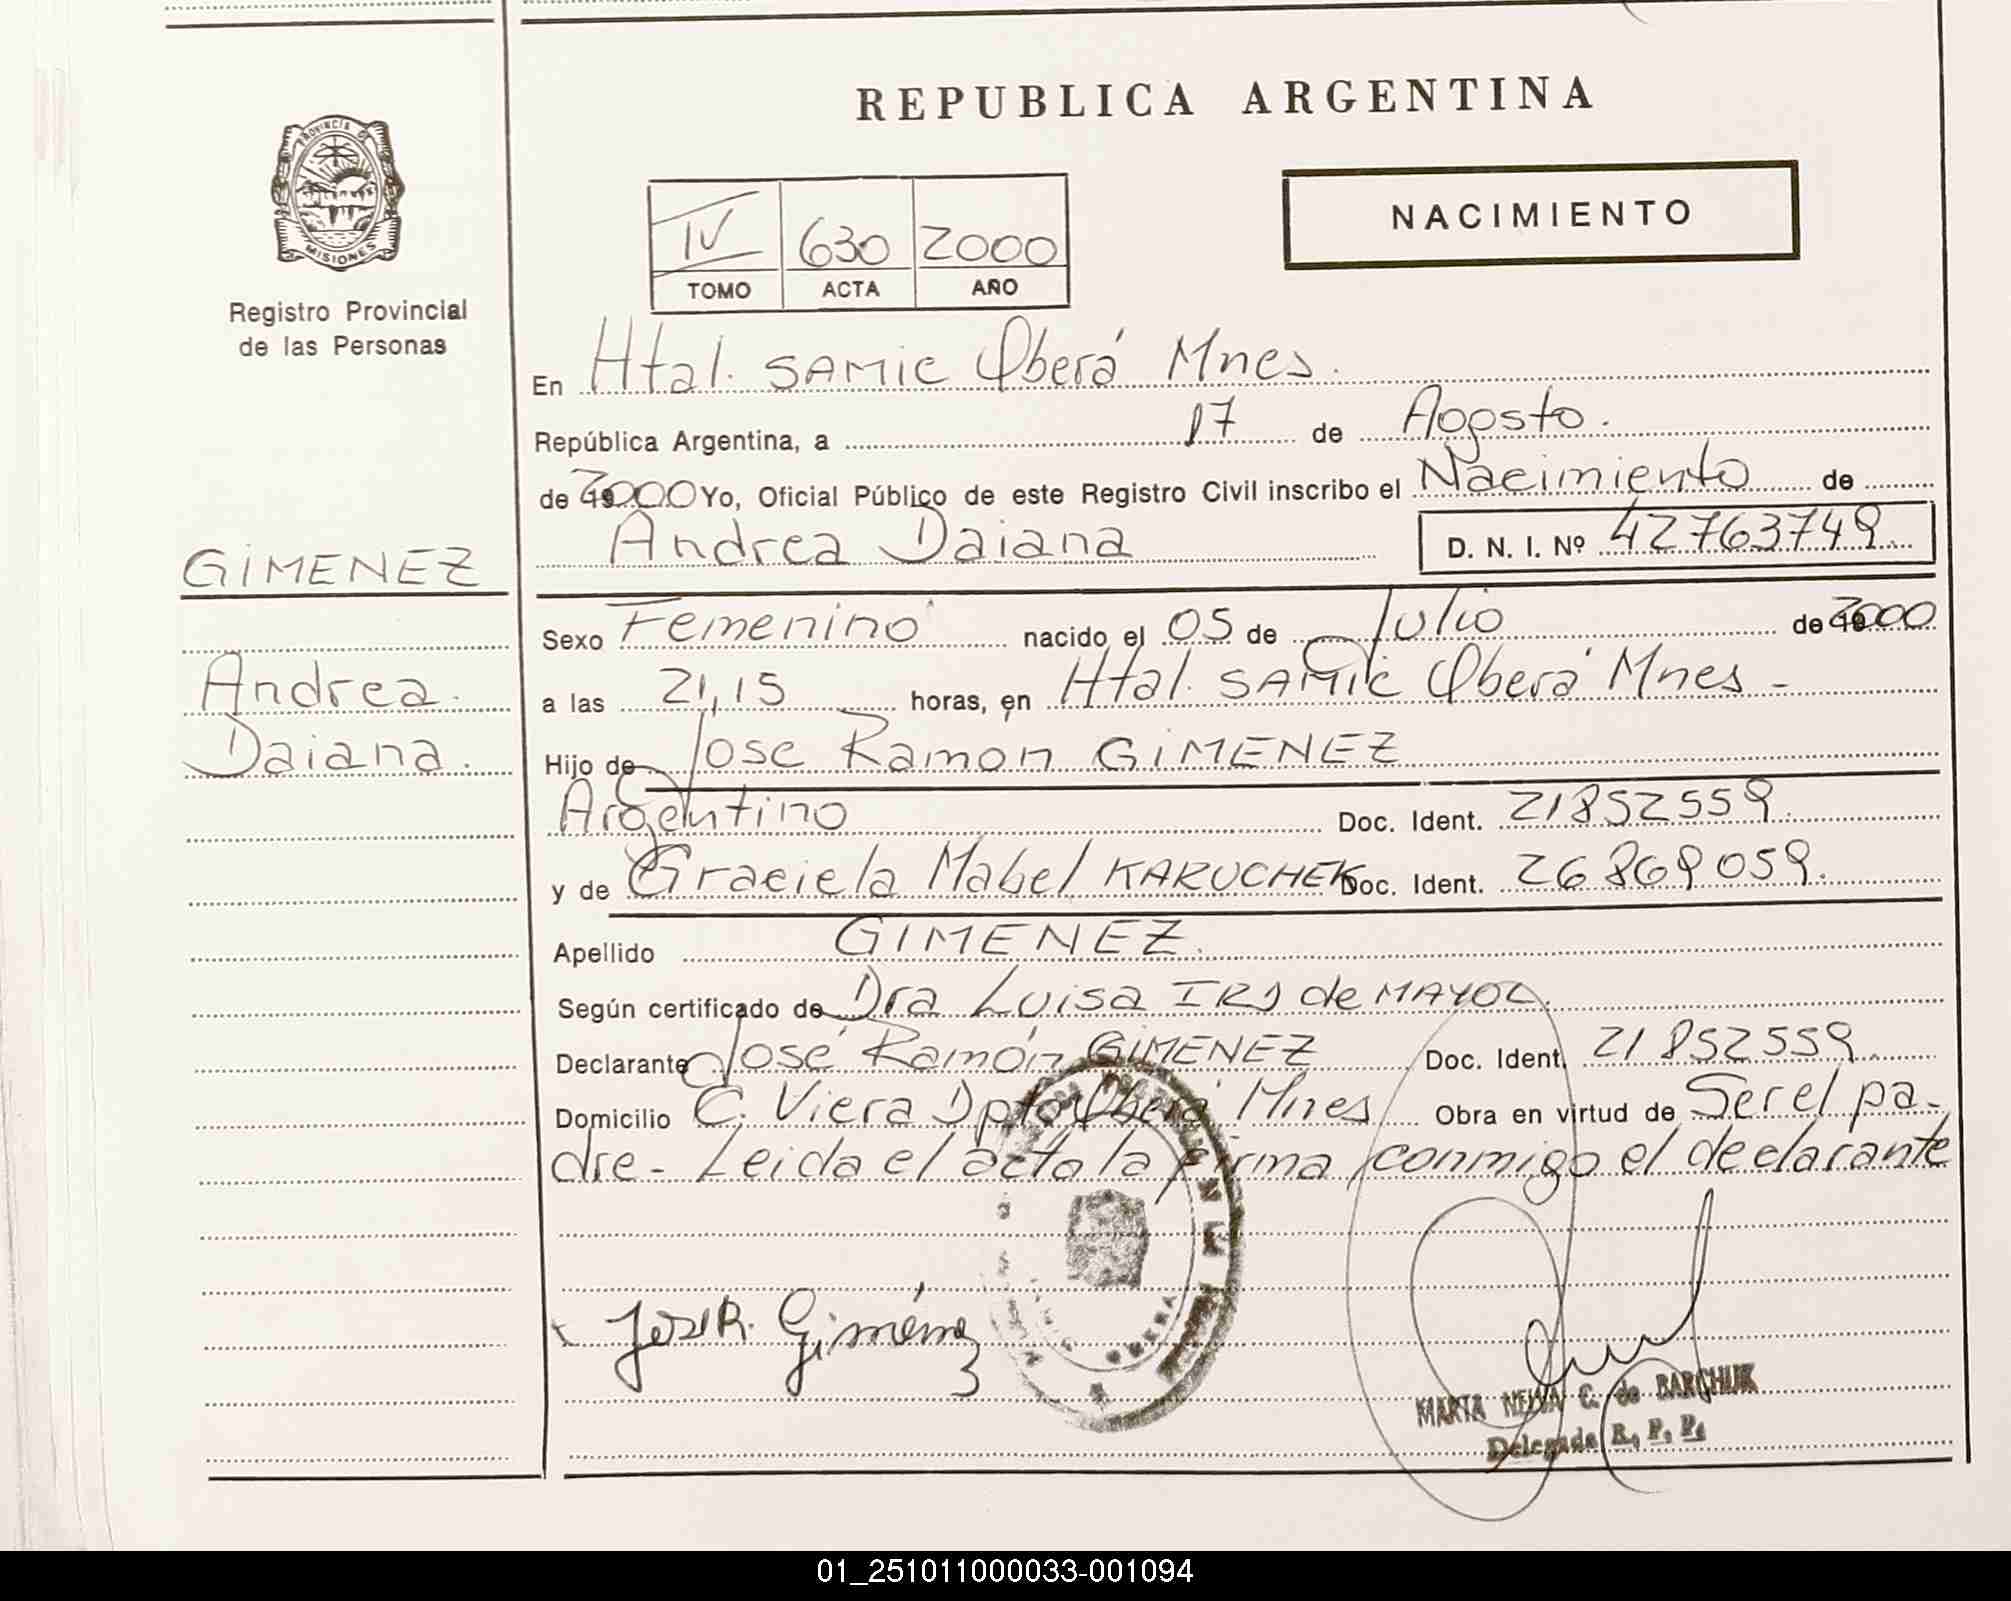 REPUBLICA ARGENTINA
PROVINCIA DE
MISIONES
Registro Provincial
de las Personas
NACIMIENTO
IV 630 2000
TOMO ACTA AÑO
En Htal. SAMIC Oberá Mnes.
República Argentina, a 17 de Agosto.
de 2000 Yo, Oficial Público de este Registro Civil inscribo el Nacimiento de
Andrea Daiana D. N. I. Nº 42763749
GIMENEZ
Andrea.
Daiana.
Sexo Femenino nacido el 05 de Julio de 2000
a las 21,15 horas, en Htal. SAMIC Oberá Mnes -
Hijo de Jose Ramon GIMENEZ
Argentino Doc. Ident. 21852559.
y de Graciela Mabel KARUCHEK Doc. Ident. 26869059.
Apellido GIMENEZ.
Según certificado de Dra Luisa de MAYOL.
Declarante José Ramón GIMENEZ Doc. Ident. 21852559
Domicilio C. Viera Dpto Oberá Mnes Obra en virtud de Ser el pa-
dre - Leida el acta la firma conmigo el declarante
José R. Giménez
OBERA
MARTA C. de BARCHUK
Delegada R. P. P.
01_251011000033-001094